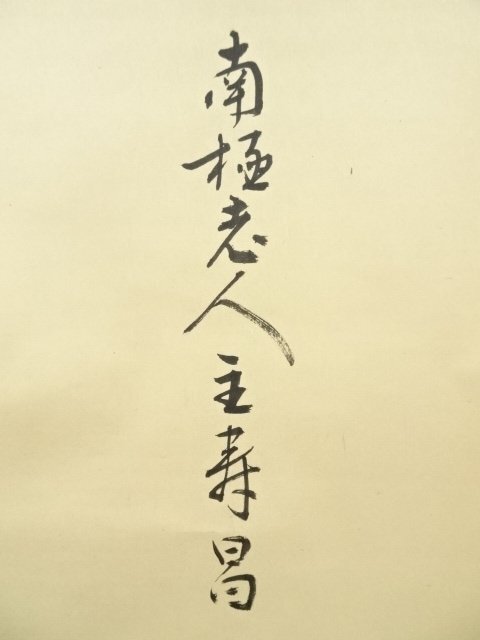 南極老人主寿昌